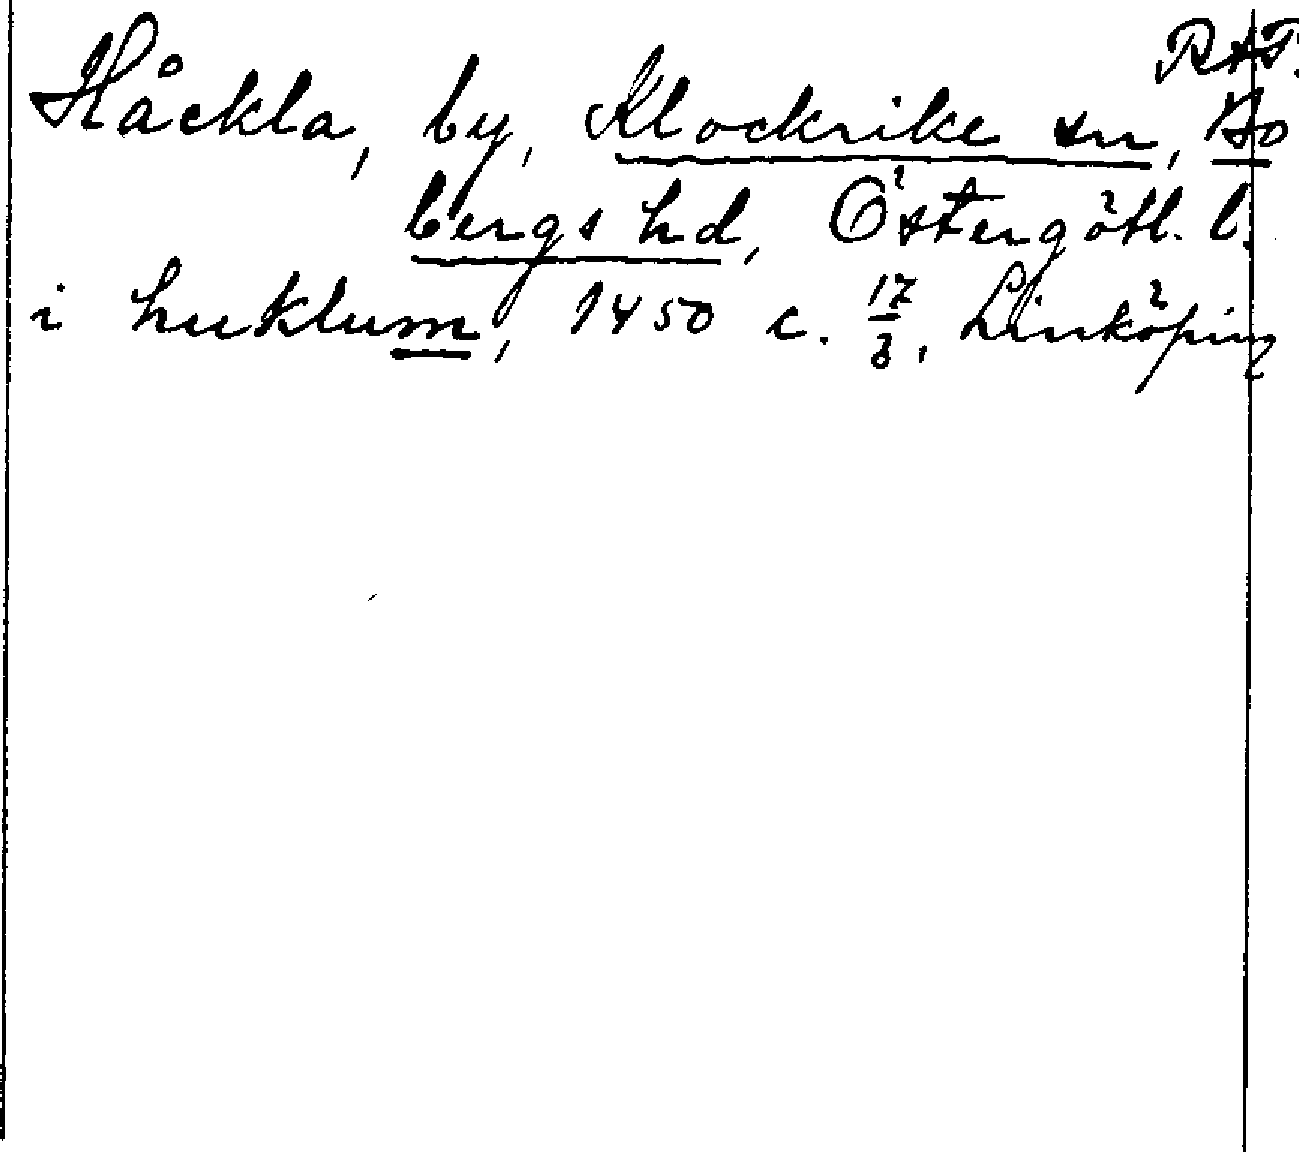 RAP.
Håckla, by, Klockrike sn, Bo
bergs hd, Östergötl. l.
i huklum, 1450 c. 17/3, Linköping